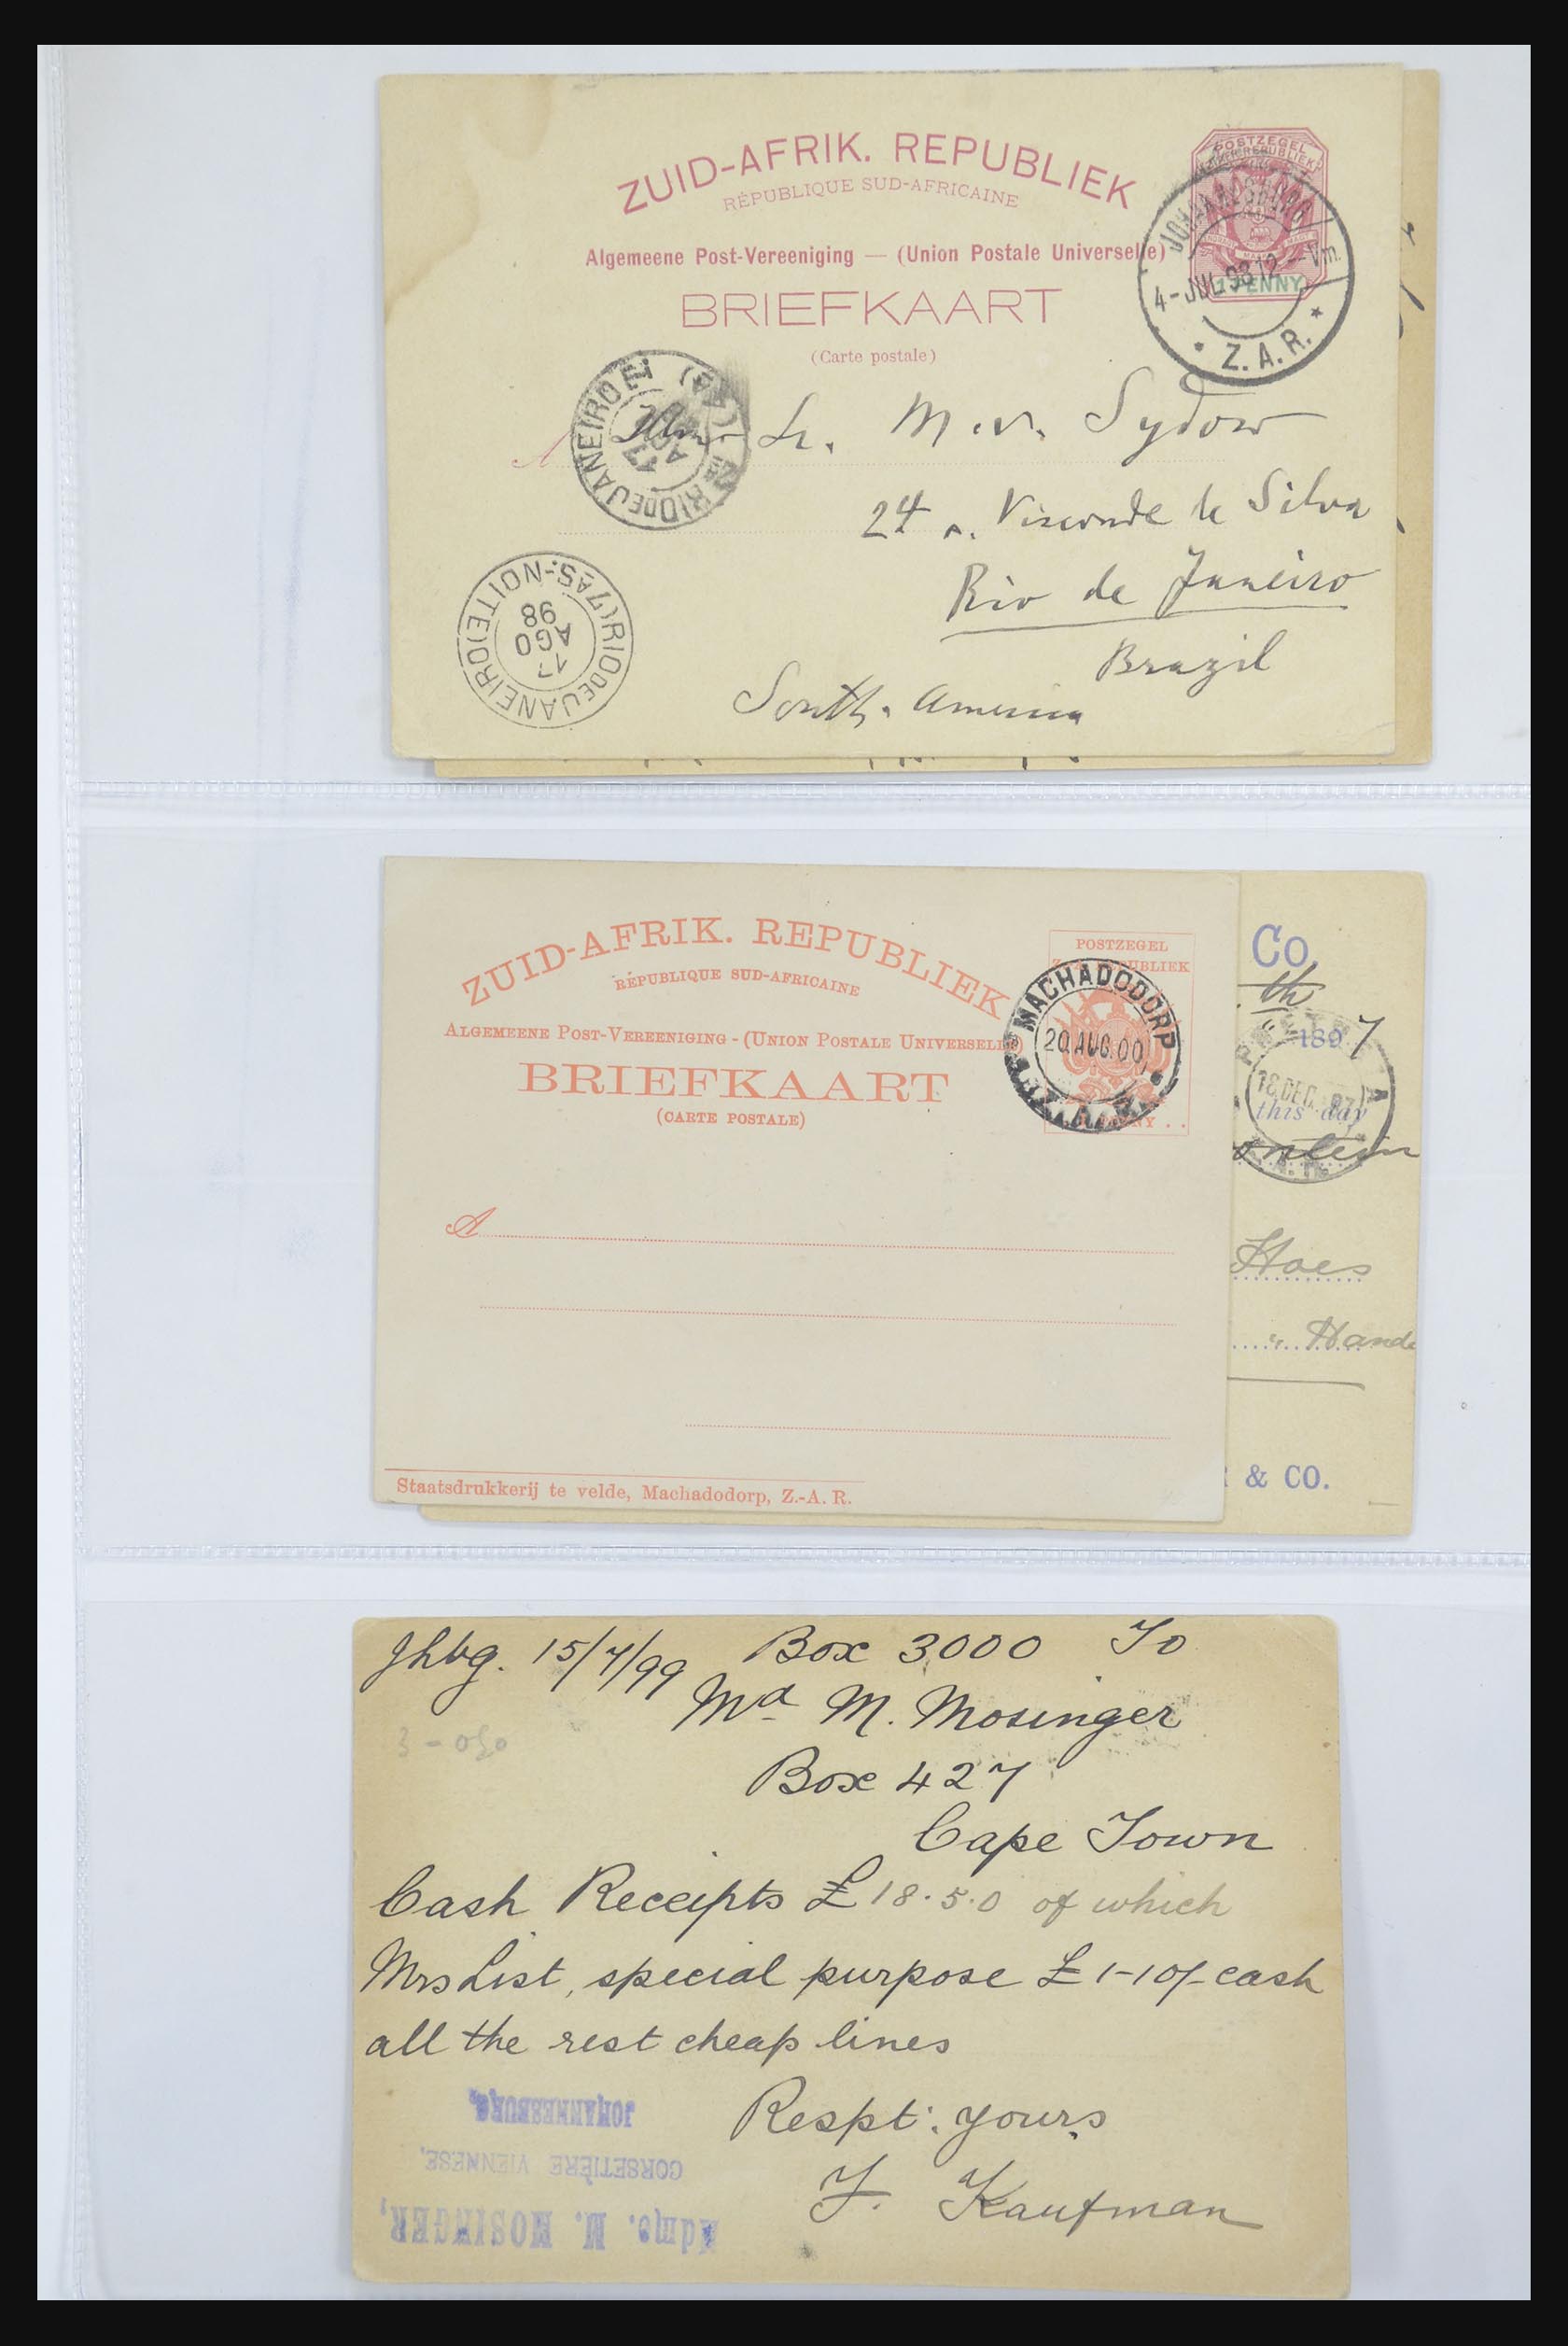 ZUID-AFRIK. REPUBLIEK
RÉPUBLIQUE SUD-AFRICAINE
Algemeene Post-Vereeniging — (Union Postale Universelle)
BRIEFKAART
(Carte postale)
POSTZEGEL
1 PENNY
JOHANNESBURG
4-JUL 98 12-Vm.
* Z.A.R. *
RIO DE JANEIRO
Sr. M. v. Sydow
24 r. Visconde de Silva
Rio de Janeiro
Brazil
South. America
RIO DE JANEIRO (7AS-NOITE)
17
AGO
98
ZUID-AFRIK. REPUBLIEK
RÉPUBLIQUE SUD-AFRICAINE
ALGEMEENE POST-VEREENIGING - (UNION POSTALE UNIVERSELLE)
BRIEFKAART
(CARTE POSTALE)
POSTZEGEL
MACHADODORP
20 AUG. 00
Z.A.R.
A
Staatsdrukkerij te velde, Machadodorp, Z.-A. R.
Co.
th
1897
18 DEC. 97
this day
Hoes
" Hande
& CO.
Jhbg. 15/7/99 Box 3000 To
Md M. Mosinger
Box 427
Cape Town
Cash Receipts £18.5.0 of which
Mrs List, special purpose £1-10/- cash
all the rest cheap lines
Respt: yours
F. Kaufman
Mdme. M. MOSINGER,
CORSETIÈRE VIENNESE,
JOHANNESBURG.